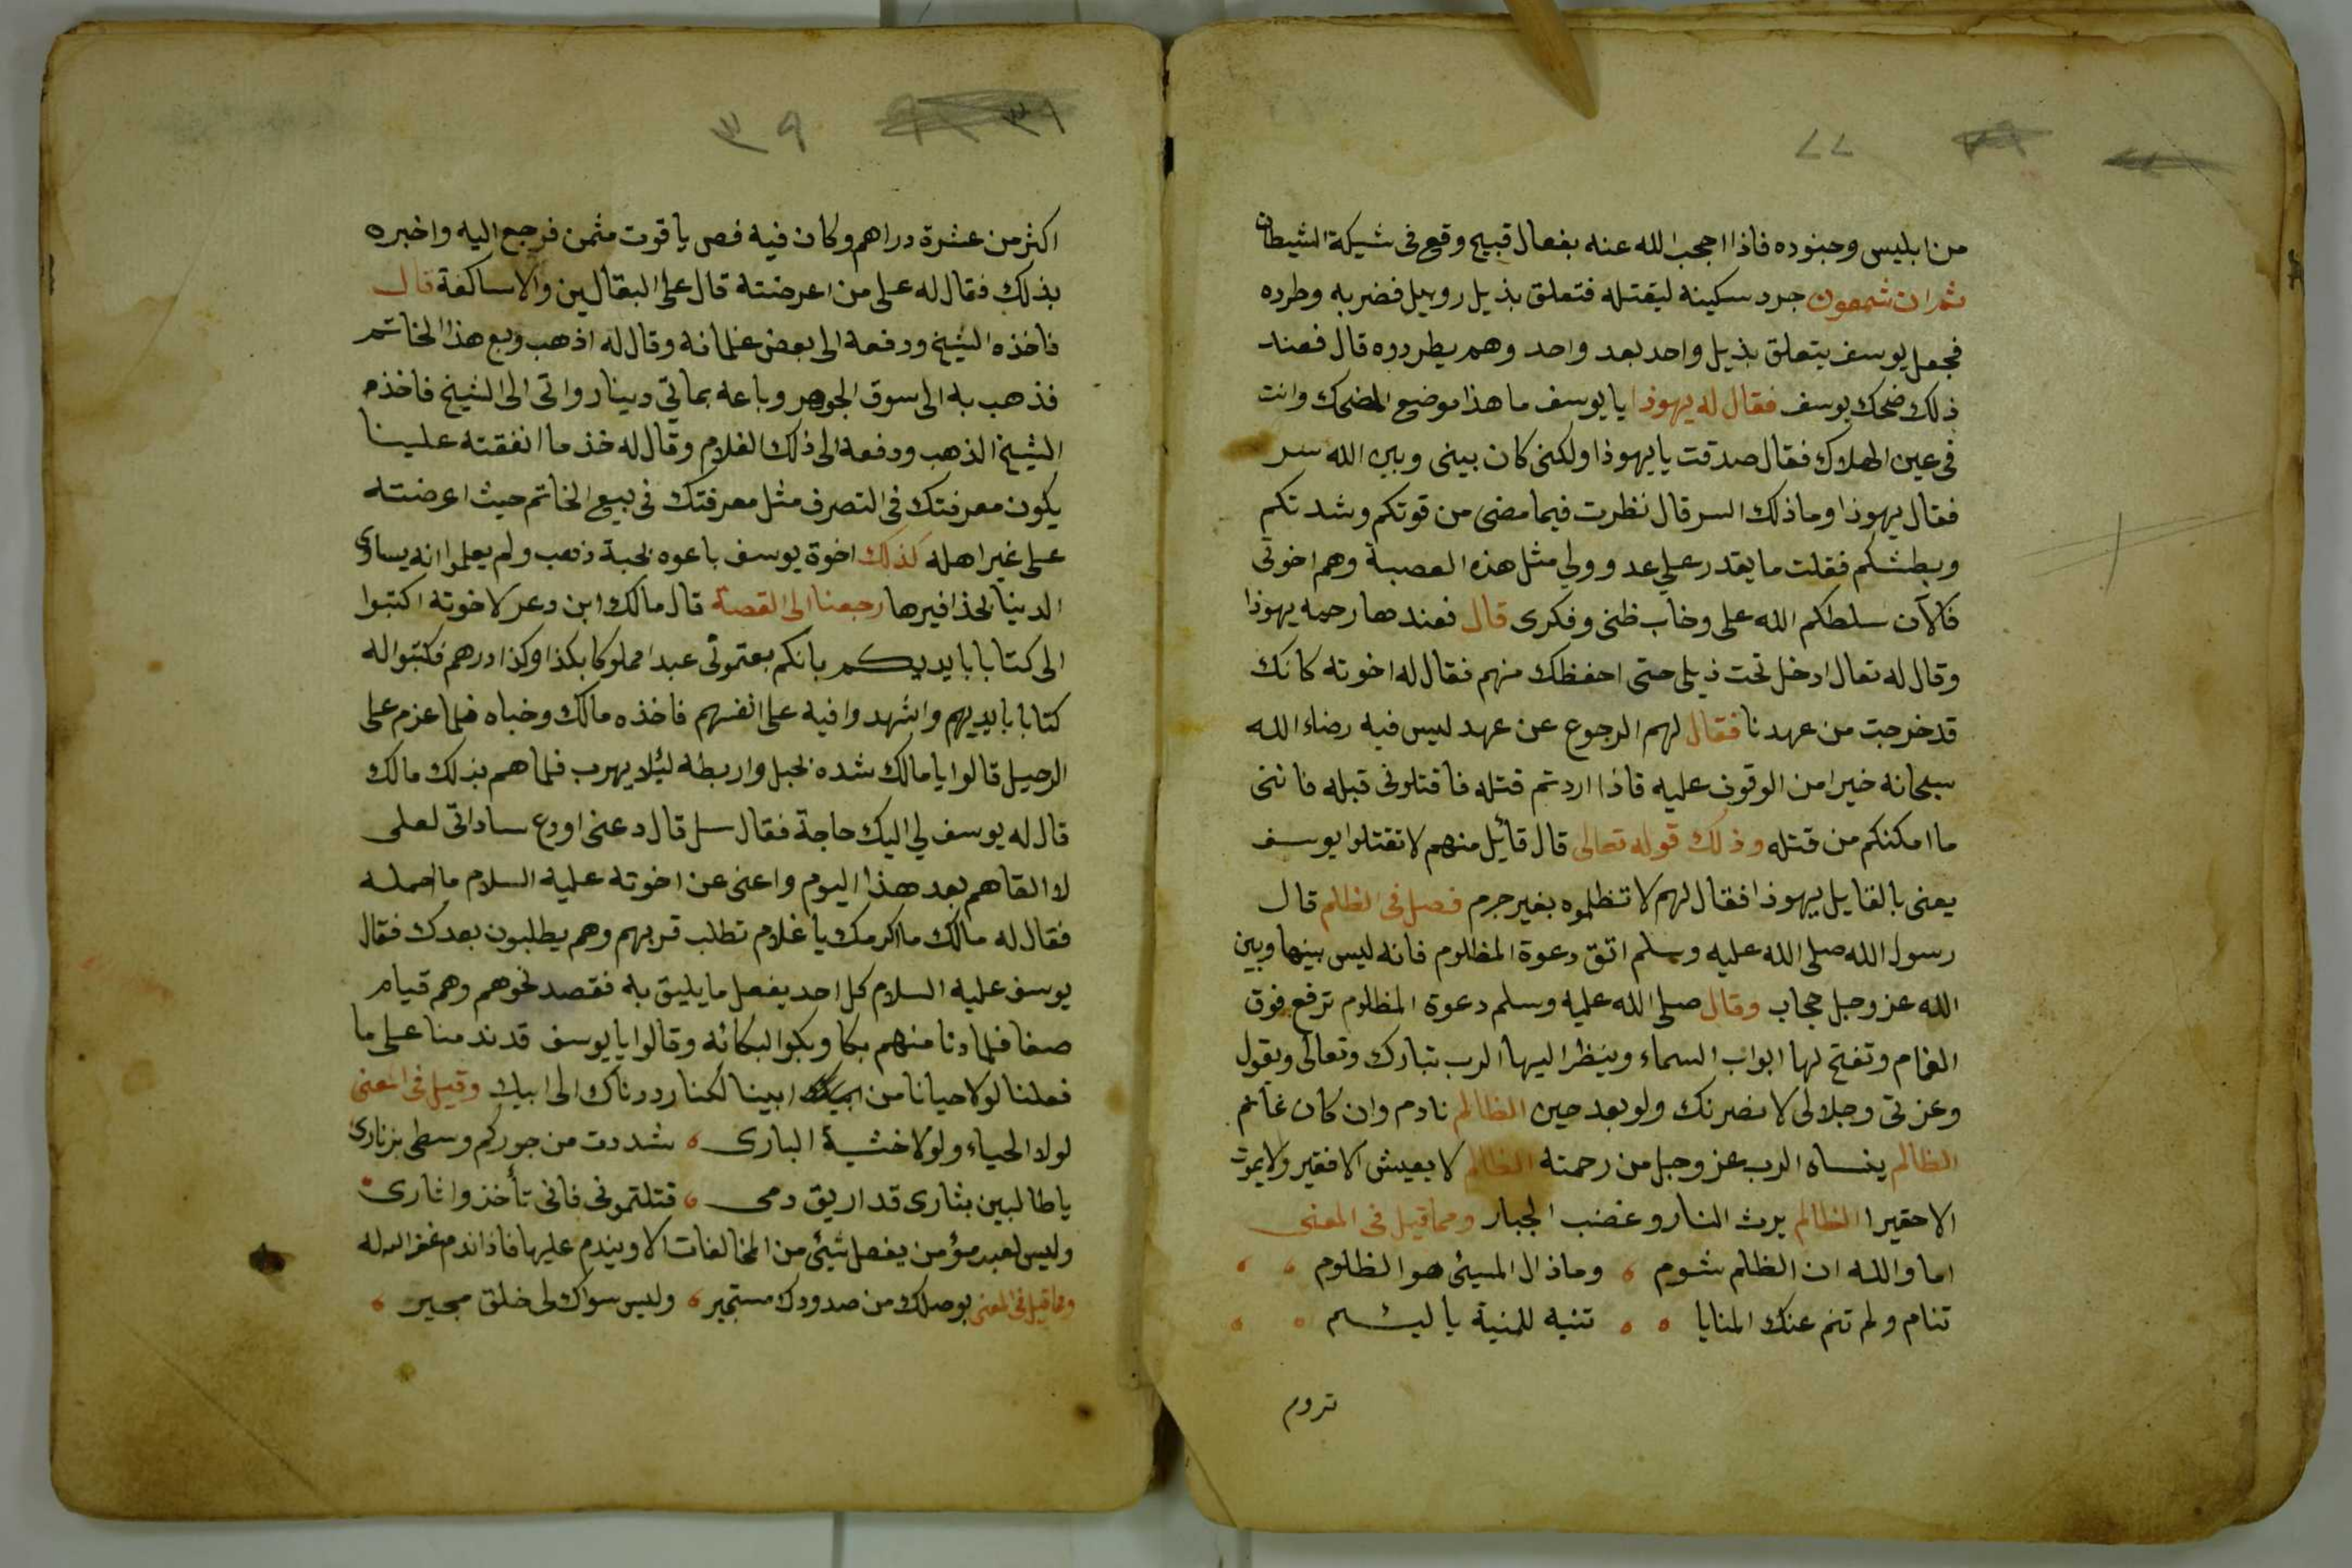 ٧٧
من ابليس وجنوده فاذا احجب الله عنه بفعال قبيح وقع في شبكة الشيطان
ثم ان شمعون جرد سكينه ليقتله فتعلق بذيل روبيل فضربه وطرده
فجعل يوسف يتعلق بذيل واحد بعد واحد وهم يطردوه قال فعند
ذلك ضحك يوسف فقال له يهوذا يا يوسف ما هذا موضع المضحك وانت
في عين الهلاك فقال صدقت يا يهوذا ولكنى كان بينى وبين الله سر
فقال يهوذا وما ذلك السر قال نظرت فيما مضى من قوتكم وشدتكم
وبطشكم فقلت ما يقدر علي عدو ولي مثل هذه العصبة وهم اخوتي
فالآن سلطكم الله على وخاب ظنى وفكرى قال فعندها رحمه يهوذا
وقال له تعال ادخل تحت ذيلى حتى احفظك منهم فقال له اخوته كانك
قد خرجت من عهدنا فقال لهم الرجوع عن عهد ليس فيه رضاء الله
سبحانه خيرا من الوقوف عليه فاذا اردتم قتله فاقتلونى قبله فاننى
ما امكنكم من قتله وذلك قوله تعالى قال قائيل منهم لا تقتلوا يوسف
يعنى بالقايل يهوذا فقال لهم لا تظلموه بغير جرم فصل في الظلم قال
رسول الله صلى الله عليه وسلم اتق دعوة المظلوم فانه ليس بينها وبين
الله عز وجل حجاب وقال صلى الله عليه وسلم دعوة المظلوم ترفع فوق
الغمام وتفتح لها ابواب السماء وينظر اليها الرب تبارك وتعالى ويقول
وعزتي وجلالى لانصرنك ولو بعد حين الظالم نادم وان كان غانم
الظالم ينساه الرب عز وجل من رحمته الظالم لا يعيش الا فقير ولا يموت
الا حقيرا الظالم يرث النار وغضب الجبار ومما قيل في المعنى
اما والله ان الظلم شوم ه وماذال المسيئ هو الظلوم
تنام ولم تنم عنك المنايا ه ه تنبه للمنية يا ليشم
تروم
٣٩
اكثر من عشرة دراهم وكان فيه فص ياقوت مثمن فرجع اليه واخبره
بذلك فقال له على من اعرضته قال على البقالين والاساكفة قال
فاخذه الشيخ ودفعه الى بعض غلمانه وقال له اذهب وبع هذا الخاتم
فذهب به الى سوق الجوهر وباعه بماتي دينار واتى الى الشيخ فاخذ
الشيخ الذهب ودفعه الى ذلك الغلام وقال له خذ ما انفقته علينا
يكون معرفتك في التصرف مثل معرفتك في بيع الخاتم حيث اعرضته
على غير اهله كذلك اخوة يوسف باعوه بحبة ذهب ولم يعلموا انه يساوى
الدينا بحذافيرها رجعنا الى القصة قال مالك ابن دعر لاخوته اكتبوا
الى كتابا بايديكم بانكم بعتموني عبدا مملوكا بكذا وكذا درهم فكتبوا له
كتابا بايديهم واشهدوا فيه على انفسهم فاخذه مالك وخباه فلما عزم على
الرحيل قالوا يا مالك شده بحبل واربطه ليئلا يهرب فلما هم بذلك مالك
قال له يوسف لي اليك حاجة فقال سل قال دعنى اودع ساداتي لعلى
لا القاهم بعد هذا اليوم واعنى عن اخوته عليه السلام ما احمله
فقال له مالك ما اكرمك يا غلام تطلب قربهم وهم يطلبون بعدك فقال
يوسف عليه السلام كل احد يفعل ما يليق به فقصد نحوهم وهم قيام
صفا فلما دنا منهم بكا وبكوا لبكائه وقالوا يا يوسف قد ندمنا على ما
فعلنا لولا حيانا من ابينا لكنا رددناك الى ابيك وقيل في المعنى
لولا الحياء ولولا خشية البارى ه شددت من جوركم وسطى بزنارى
يا طالبين بثارى قد اريق دمى ه قتلتمونى فانى تأخذوا ثارى
وليس لعبد مؤمن يفعل شيئ من المخالفات الا ويندم عليها فاذا ندم غفر الله له
ومما قيل في المعنى بوصلك من صدودك مستجير ه وليس سواك لى خلق مجير ه